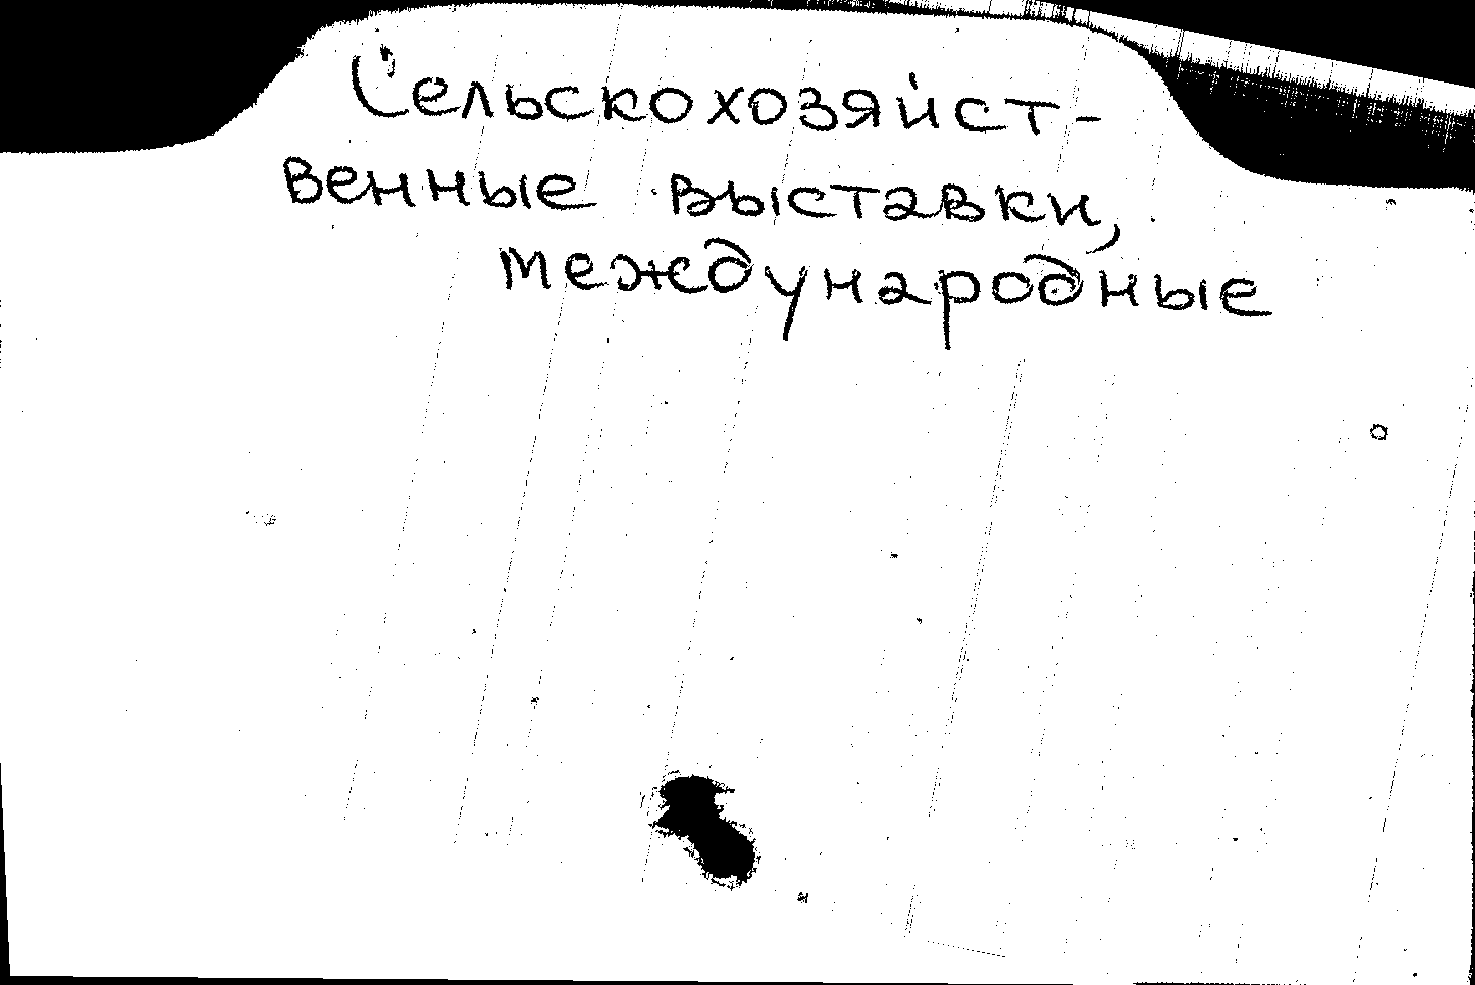 Сельскохозяйст-
венные выставки,
международные